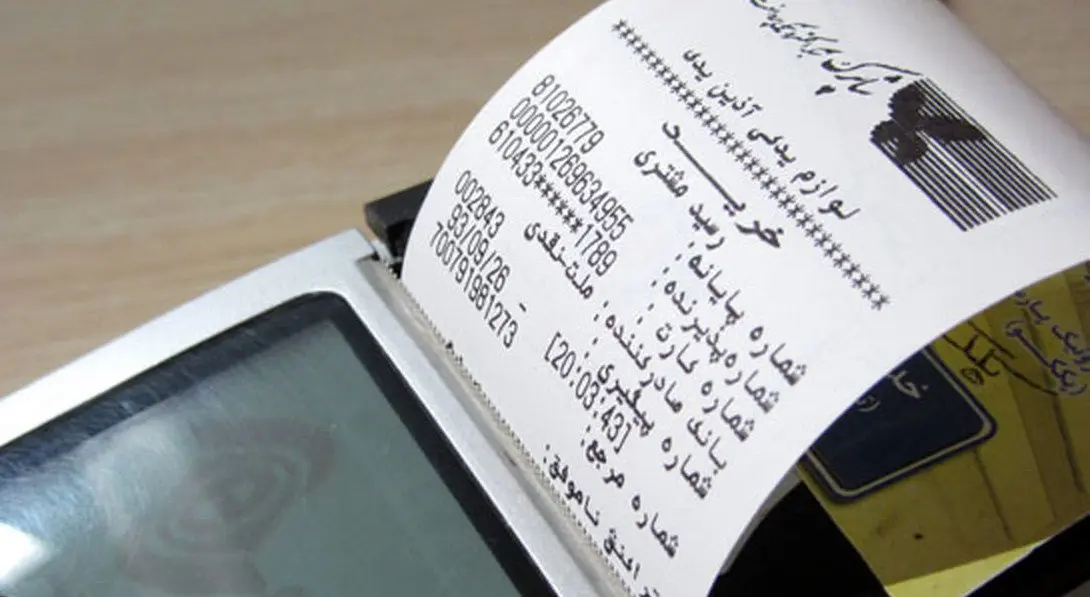 لوازم یدکی آذین یدک
خریــــد
رسید مشتری
شماره پایانه: 81026779
شماره پذیرنده: 000001269634955
شماره کارت: 610433******1789
بانک صادرکننده: ملت-نقدی
شماره پیگیری: 002843
93/09/26 - [20:03:43]
شماره مرجع: 700791981273
تراکنش ناموفق: